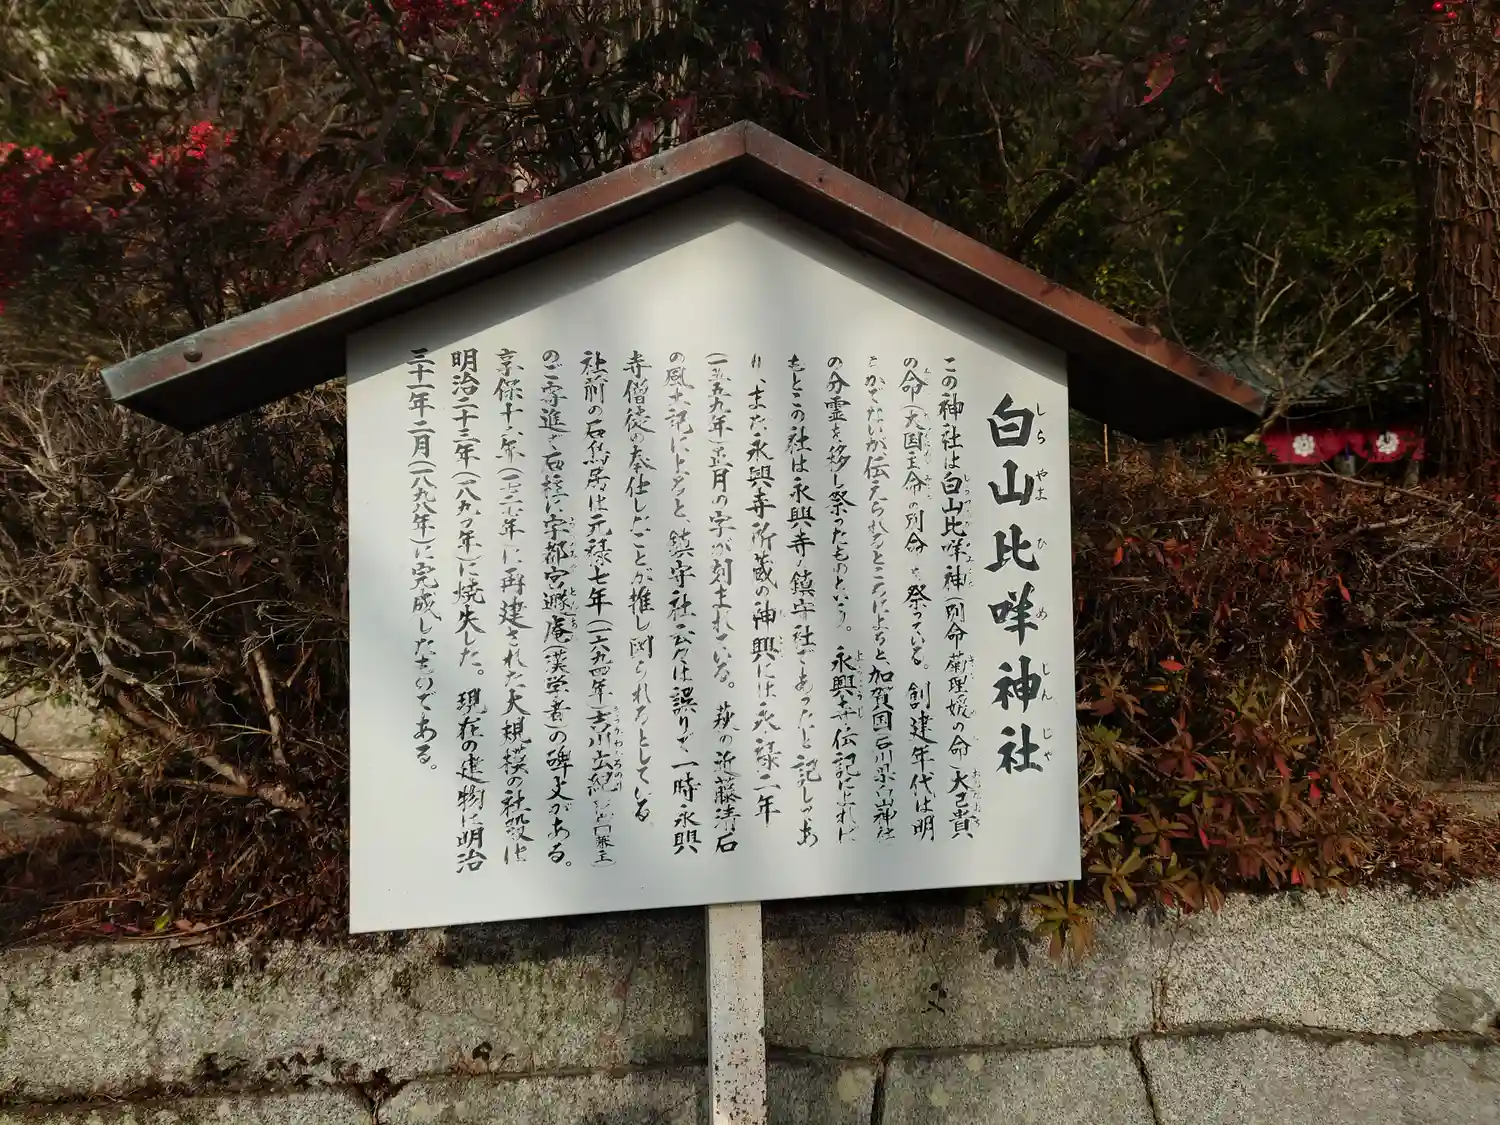 白山比咩神社
しらやまひめじんじゃ
この神社は白山比咩神(別命菊理媛の命)大己貴
の命(大国主命の別命)を祭っている。創建年代は明
らかでないが伝えられるところによると、加賀国石川県白山神社
の分霊を移し祭ったものという。永興寺伝記によれば
もとこの社は永興寺ノ鎮守社であったと記してあ
り、また永興寺所蔵の神輿には永禄二年
(一五五九年)正月の字が刻まれている。萩の近藤清石
の風土記によると、鎮守社云々は誤りで一時永興
寺僧徒の奉仕したことが推し図られるとしている
社前の石鳥居は元禄七年(一六九四年)吉川広紀
のご寄進で石柱に宇都宮遯庵(漢学者)の碑文がある。
享保十一年(一七二六年)に再建された大規模の社殿は
明治二十三年(一八九〇年)に焼失した。現在の建物は明治
三十一年二月(一八九八年)に完成したものである。